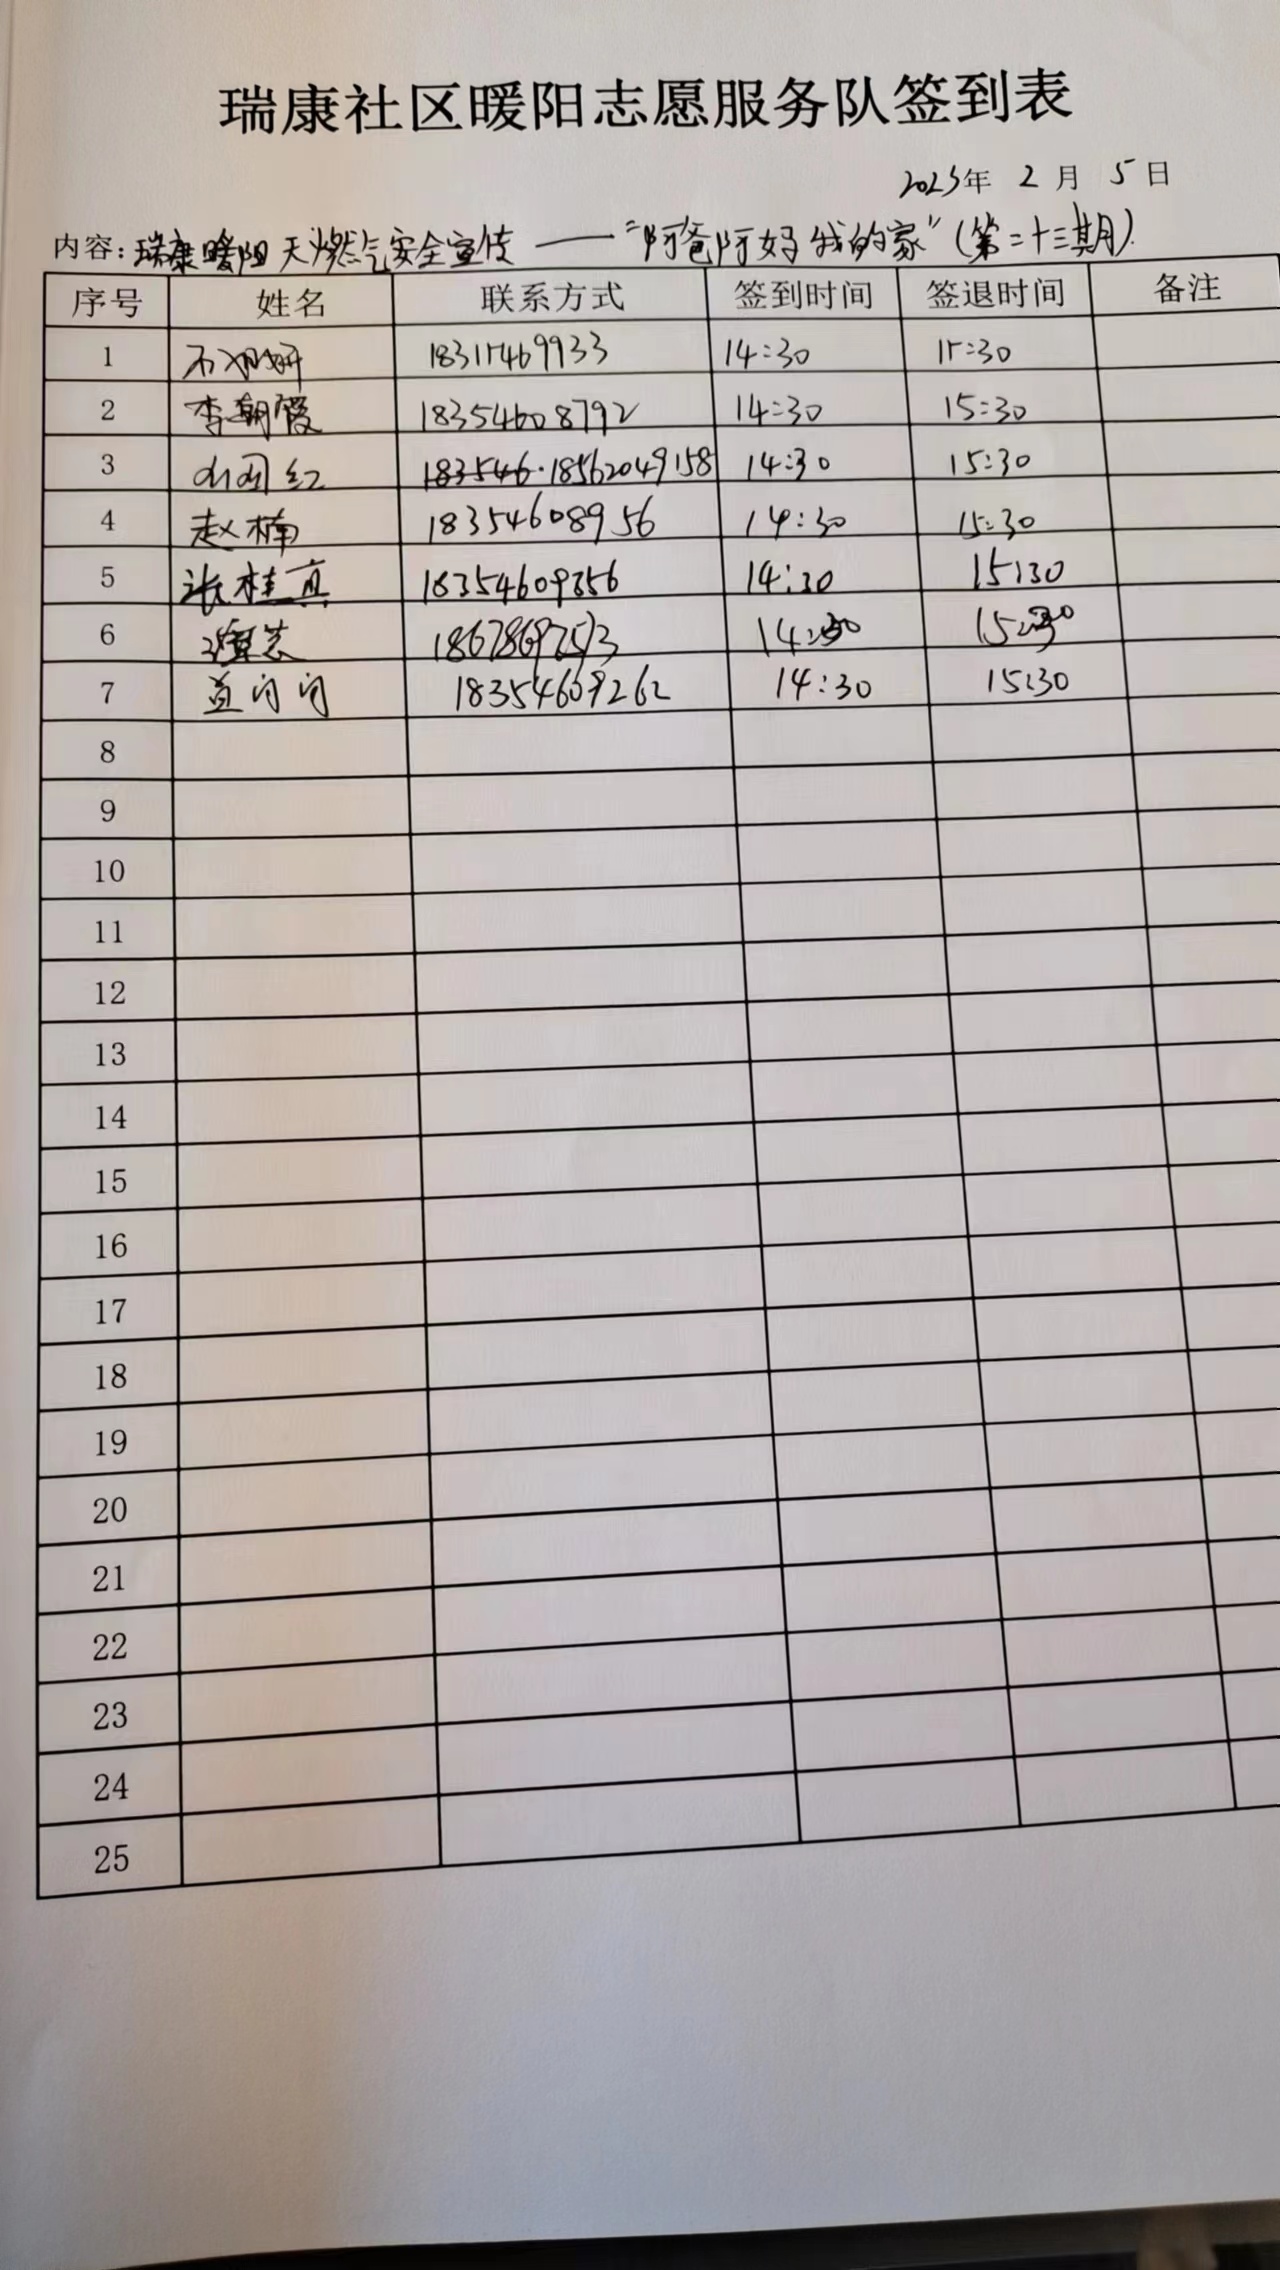 瑞康社区暖阳志愿服务队签到表
2023年 2月 5日
内容：瑞康暖阳天燃气安全宣传——"阿爸阿妈我的家"（第二十三期）
序号 姓名 联系方式 签到时间 签退时间 备注
1 18317469933 14:30 15:30
2 李朝霞 18354608792 14:30 15:30
3 183546·18562049158 14:30 15:30
4 赵楠 18354608956 14:30 15:30
5 张桂真 18354609356 14:30 15:30
6 14:30 15:30
7 18354609262 14:30 15:30
8
9
10
11
12
13
14
15
16
17
18
19
20
21
22
23
24
25